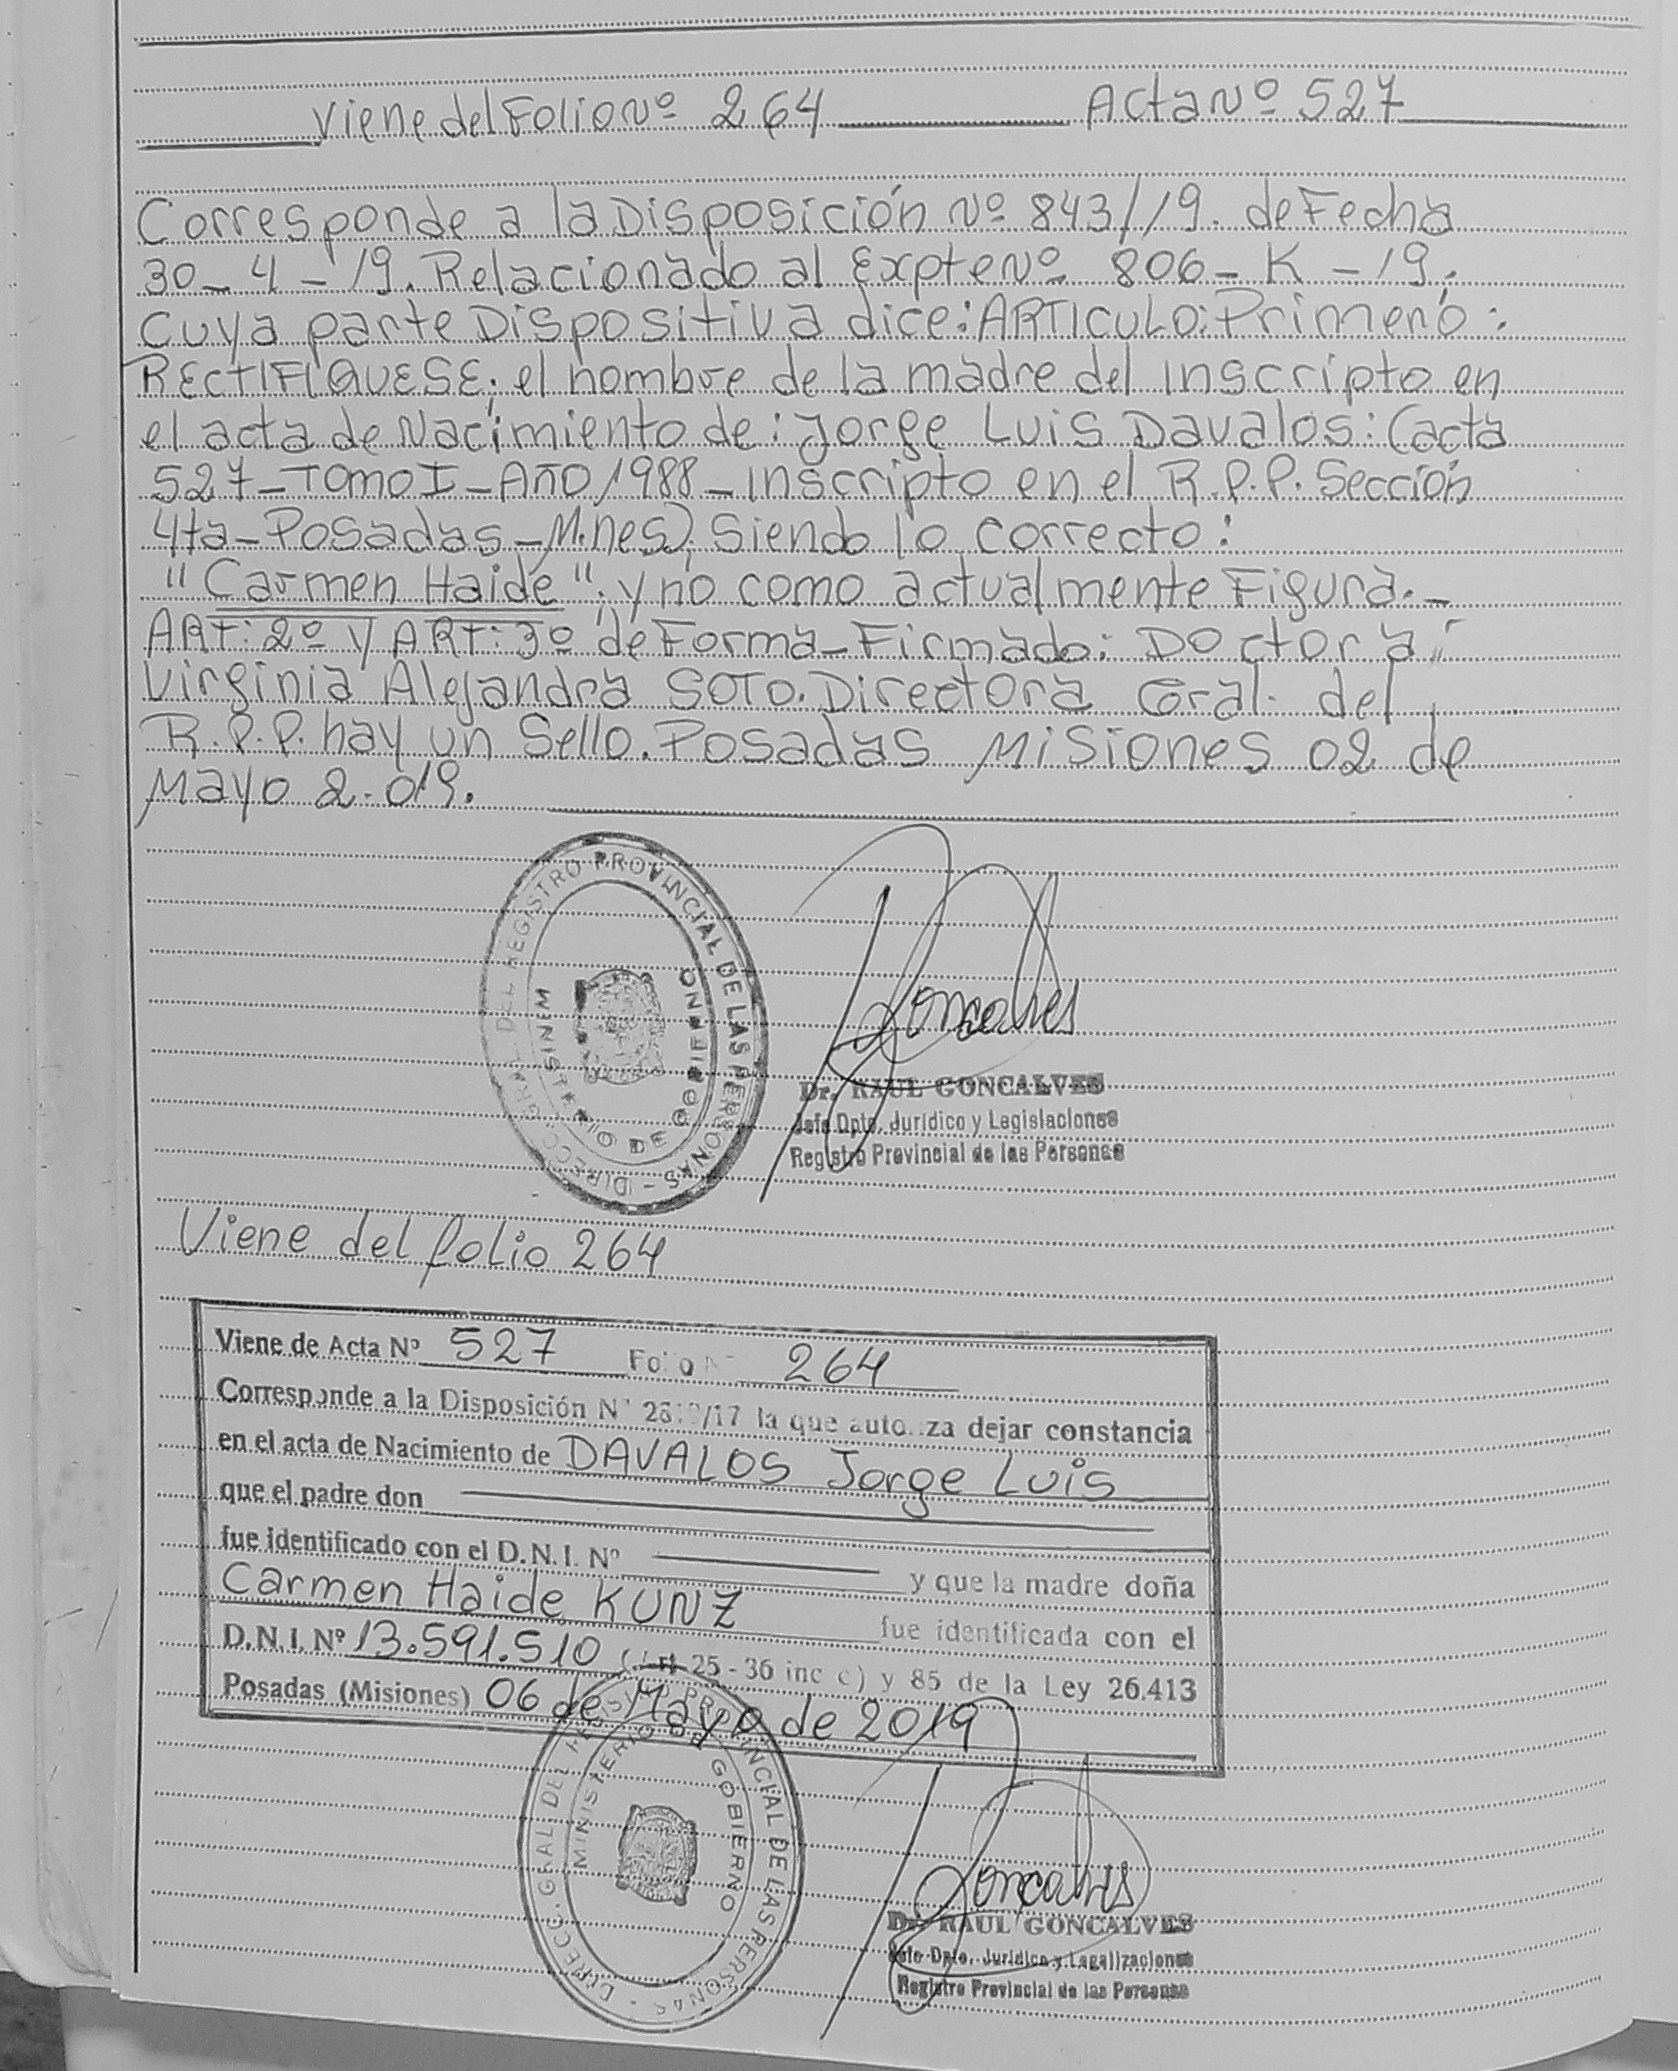 Viene del Folio Nº 264 Acta Nº 527
Corresponde a la Disposición Nº 843/19. de Fecha
30_4_19. Relacionado al Expte Nº 806_K_19.
Cuya parte Dispositiva dice: ARTICULO: Primero:
RECTIFIQUESE: el nombre de la madre del inscripto en
el acta de Nacimiento de: Jorge Luis Davalos: (acta
527_Tomo I_Año 1988_inscripto en el R.P.P. Sección
4ta_Posadas_M.nes). Siendo lo correcto:
"Carmen Haide"; y no como actualmente Figura._
ART: 2º y ART: 3º de Forma_Firmado: Doctora:
Virginia Alejandra SOTO. Directora Gral. del
R.P.P. hay un Sello. Posadas Misiones 02 de
Mayo 2.019.
DIRECC. GRAL. DEL REGISTRO PROVINCIAL DE LAS PERSONAS -
MINISTERIO DE GOBIERNO
Goncalves
Dr. RAUL GONCALVES
Jefe Dpto. Jurídico y Legislaciones
Registro Provincial de las Personas
Viene del folio 264
Viene de Acta Nº 527 Folio Nº 264
Corresponde a la Disposición Nº /17 la que autoriza dejar constancia
en el acta de Nacimiento de DAVALOS Jorge Luis
que el padre don
fue identificado con el D.N.I. Nº
y que la madre doña
Carmen Haide KUNZ fue identificada con el
D.N.I. Nº 13.591.510 (Art 25 - 36 inc c) y 85 de la Ley 26.413
Posadas (Misiones) 06 de Mayo de 2019
DIRECC. GRAL. DEL REGISTRO PROVINCIAL DE LAS PERSONAS -
MINISTERIO DE GOBIERNO
Goncalves
Dr. RAUL GONCALVES
Jefe Dpto. Jurídico y Legalizaciones
Registro Provincial de las Personas